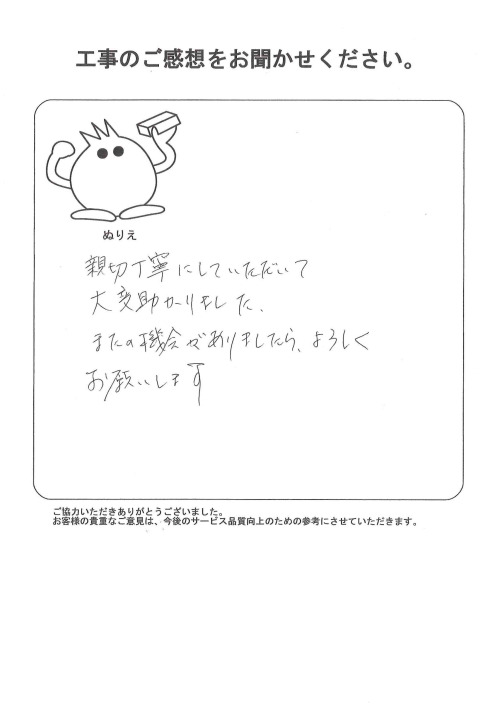 工事のご感想をお聞かせください。
ぬりえ
親切丁寧にしていただいて
大変助かりました、
またの機会がありましたら、よろしく
お願いします
ご協力いただきありがとうございました。
お客様の貴重なご意見は、今後のサービス品質向上のための参考にさせていただきます。